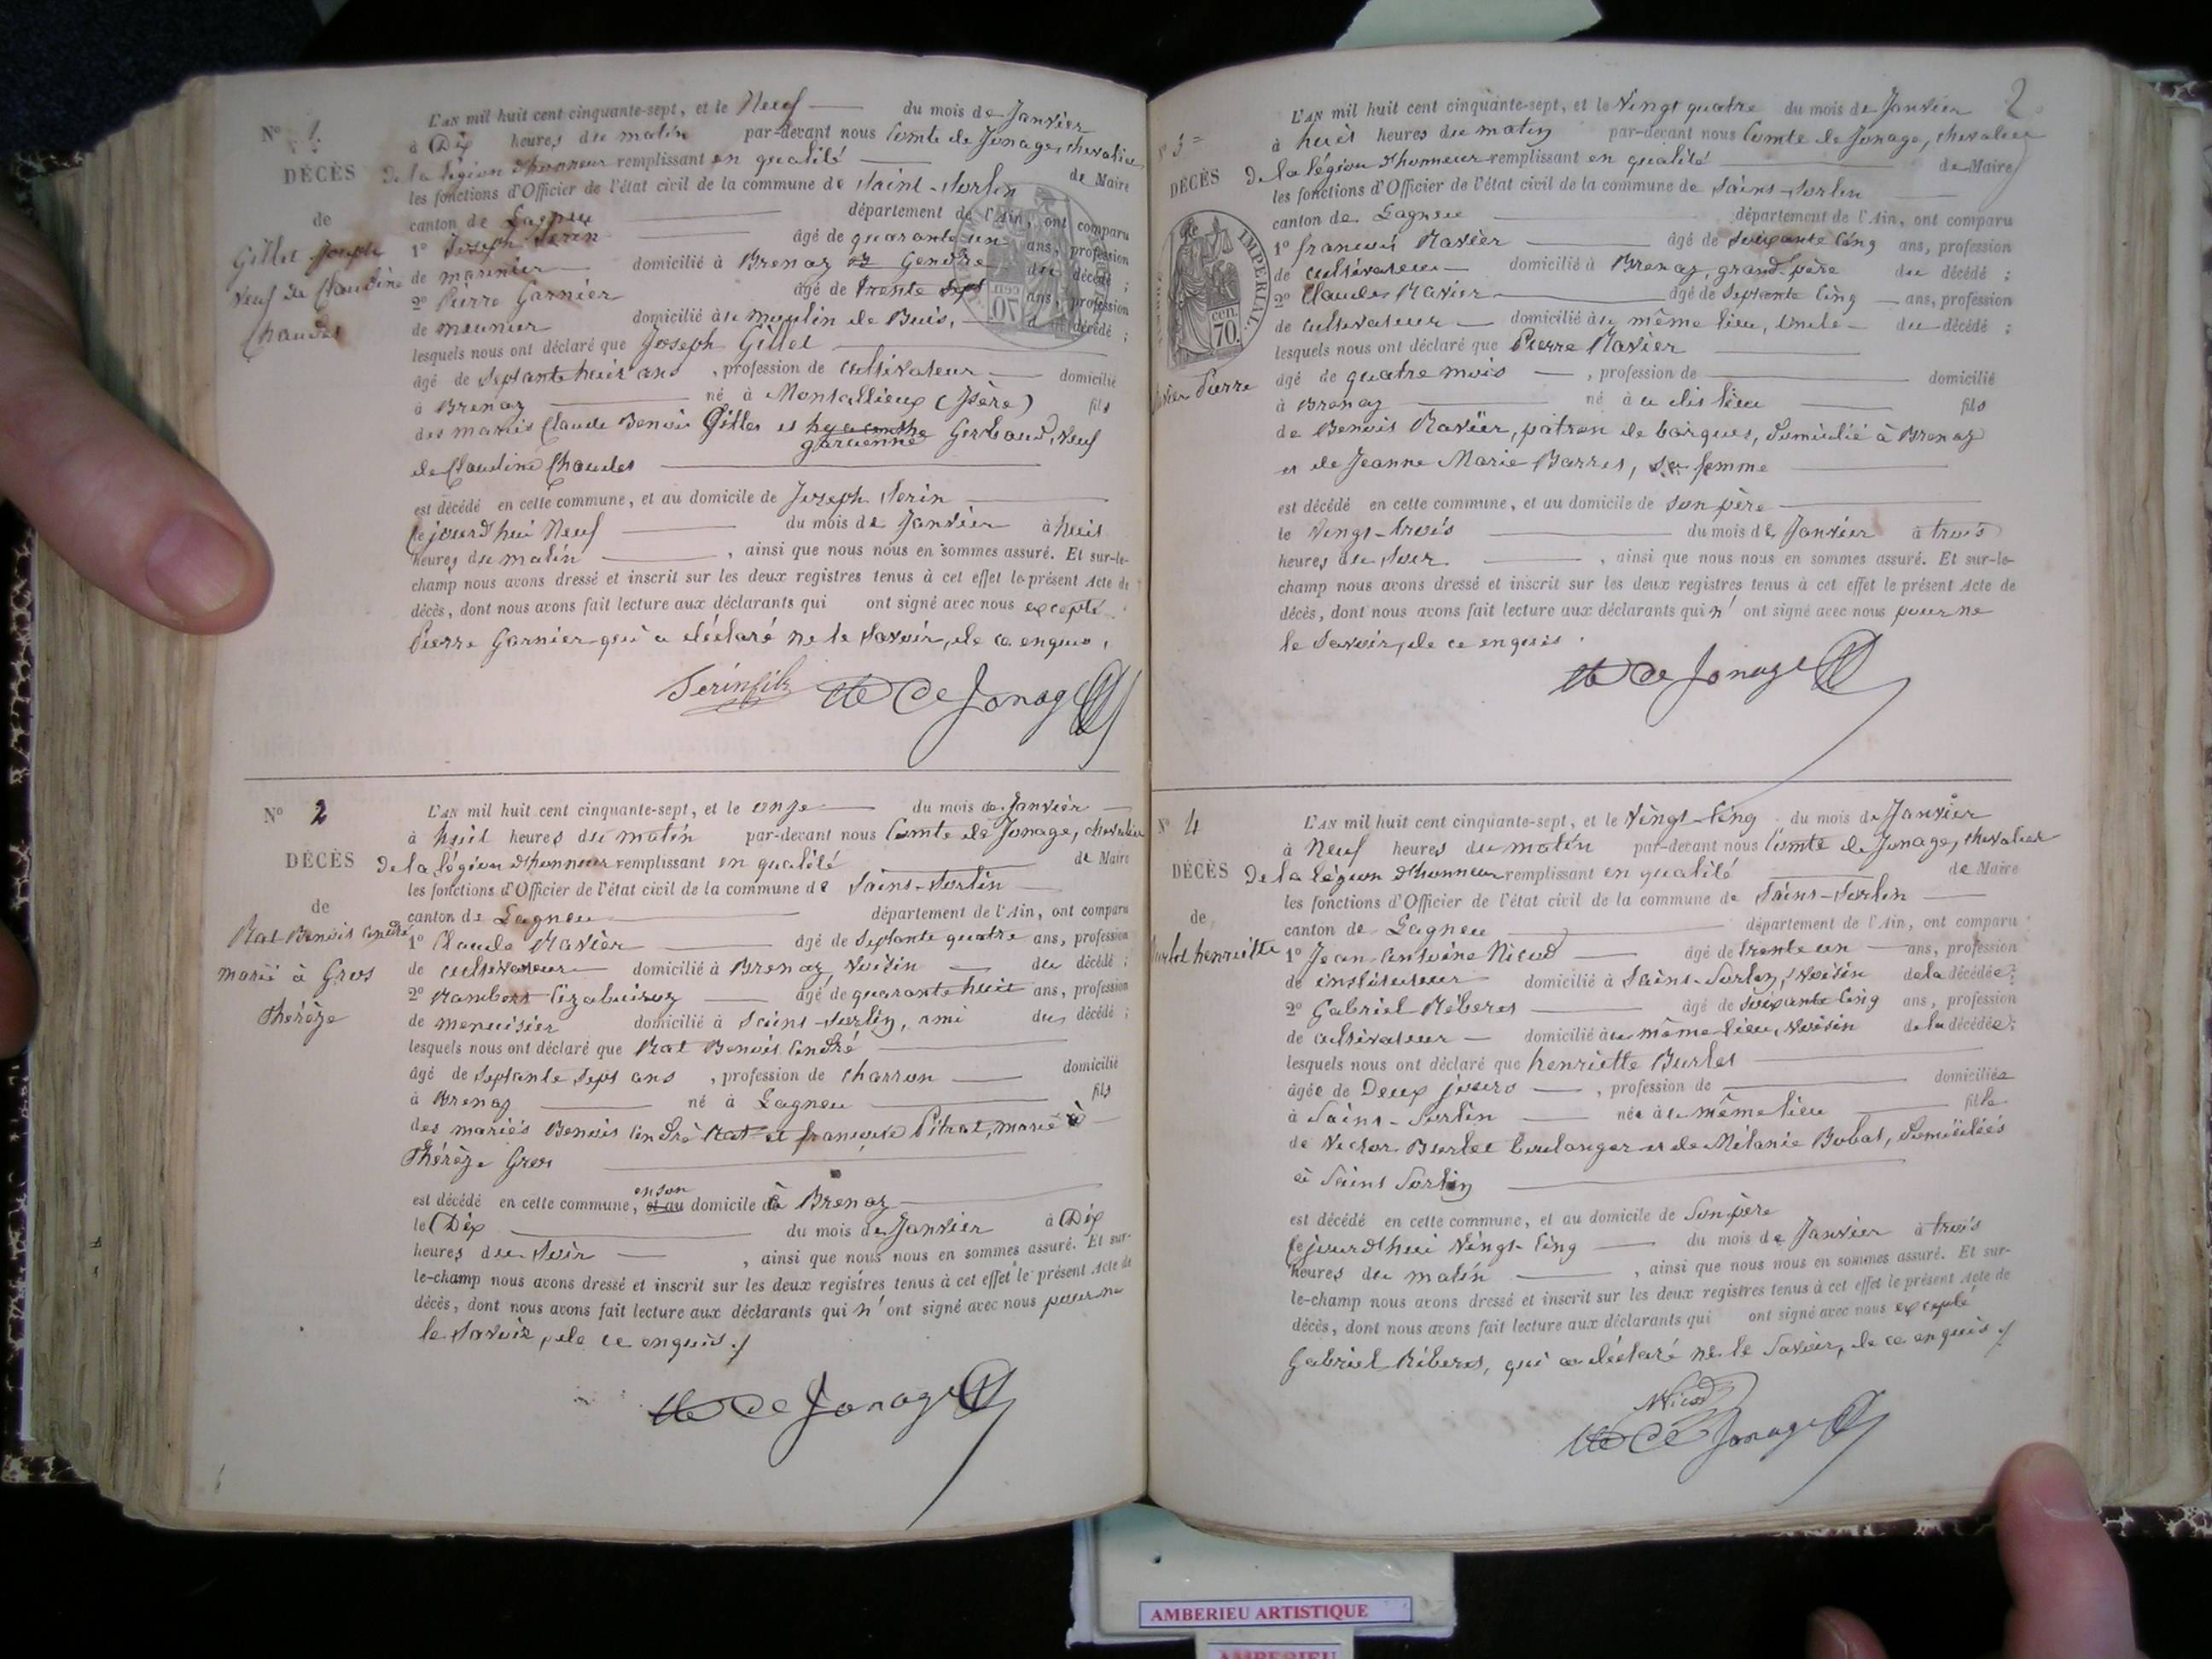 N° 1.
DÉCÈS
de
Gillet Joseph
veuf de Claudine
Chaudet
L'AN mil huit cent cinquante-sept, et le Neuf du mois de Janvier
à Dix heures du matin par-devant nous Comte de Jonage, chevalier
De la légion d'honneur remplissant en qualité de Maire
les fonctions d'Officier de l'état civil de la commune de Saint-Sorlin
canton de Lagneu département de l'Ain, ont comparu
1° Joseph Serin âgé de quarante un ans, profession
de meunier domicilié à Brenaz Gendre du décédé ;
2° Pierre Garnier âgé de trente sept ans, profession
de meunier domicilié au moulin de Buis, d décédé ;
lesquels nous ont déclaré que Joseph Gillet
âgé de septante huit ans, profession de cultivateur domicilié
à Brenaz né à Montallieux (Isère) fils
des mariés Claude Benoit Gillet et Gerbaud, veuf
de Claudine Chaudet
est décédé en cette commune, et au domicile de Joseph Serin
cejourd'hui Neuf du mois de Janvier à huit
heures du matin, ainsi que nous nous en sommes assuré. Et sur-le-
champ nous avons dressé et inscrit sur les deux registres tenus à cet effet le présent Acte de
décès, dont nous avons fait lecture aux déclarants qui ont signé avec nous excepté
Pierre Garnier qui a déclaré ne le savoir, de ce enquis.
Serin fils Cte de Jonage
N° 2
DÉCÈS
de
Rat Benoit André
marié à Gros
Thérèze
L'AN mil huit cent cinquante-sept, et le onze du mois de Janvier
à huit heures du matin par-devant nous Comte de Jonage, chevalier
De la légion d'honneur remplissant en qualité de Maire
les fonctions d'Officier de l'état civil de la commune de Saint-Sorlin
canton de Lagneu département de l'Ain, ont comparu
1° Claude Ravier âgé de septante quatre ans, profession
de cultivateur domicilié à Brenaz, voisin du décédé ;
2° Rambert âgé de quarante huit ans, profession
de menuisier domicilié à Saint-Sorlin, ami du décédé ;
lesquels nous ont déclaré que Rat Benoit André
âgé de septante sept ans, profession de charron domicilié
à Brenaz né à Lagneu fils
des mariés Benoit André Rat et françoise Pitrat, marié à
Thérèze Gros
est décédé en cette commune, et au en son domicile à Brenaz
le Dix du mois de Janvier à Dix
heures du soir, ainsi que nous nous en sommes assuré. Et sur-
le-champ nous avons dressé et inscrit sur les deux registres tenus à cet effet le présent Acte de
décès, dont nous avons fait lecture aux déclarants qui n'ont signé avec nous pour ne
le savoir, de ce enquis ./
Cte de Jonage
2
3
DÉCÈS
IMPERIAL
cen.
70.
Pierre
L'AN mil huit cent cinquante-sept, et le vingt quatre du mois de Janvier
à huit heures du matin par-devant nous Comte de Jonage, chevalier
de la légion d'honneur remplissant en qualité de Maire
les fonctions d'Officier de l'état civil de la commune de Saint-Sorlin
canton de Lagneu département de l'Ain, ont comparu
1° françois Ravier âgé de soixante cinq ans, profession
de cultivateur domicilié à Brenaz, grand-père du décédé ;
2° Claude Ravier âgé de septante cinq ans, profession
de cultivateur domicilié au même lieu, oncle du décédé ;
lesquels nous ont déclaré que Pierre Ravier
âgé de quatre mois, profession de domicilié
à Brenaz né au dit lieu fils
de Benoit Ravier, patron de barques, domicilié à Brenaz
et de Jeanne Marie Barret, sa femme
est décédé en cette commune, et au domicile de son père
le vingt-trois du mois de Janvier à trois
heures du soir, ainsi que nous nous en sommes assuré. Et sur-le-
champ nous avons dressé et inscrit sur les deux registres tenus à cet effet le présent Acte de
décès, dont nous avons fait lecture aux déclarants qui n'ont signé avec nous pour ne
le savoir, de ce enquis.
Cte de Jonage
N° 4
DÉCÈS
de
henriette
L'AN mil huit cent cinquante-sept, et le vingt cinq du mois de Janvier
à Neuf heures du matin par-devant nous Comte de Jonage, chevalier
De la légion d'honneur remplissant en qualité de Maire
les fonctions d'Officier de l'état civil de la commune de Saint-Sorlin
canton de Lagneu département de l'Ain, ont comparu
1° Jean Antoine Nicod âgé de trente un ans, profession
de instituteur domicilié à Saint-Sorlin, voisin de la décédée ;
2° Gabriel Réberet âgé de soixante cinq ans, profession
de cultivateur domicilié au même lieu, voisin de la décédée ;
lesquels nous ont déclaré que henriette Burlet
âgée de Deux jours, profession de domiciliée
à Saint-Sorlin née au même lieu fille
de Victor Burlet boulanger et de Mélanie Bobat, domiciliés
à Saint Sorlin
est décédé en cette commune, et au domicile de son père
cejourd'hui vingt-cinq du mois de Janvier à trois
heures du matin, ainsi que nous nous en sommes assuré. Et sur-
le-champ nous avons dressé et inscrit sur les deux registres tenus à cet effet le présent Acte de
décès, dont nous avons fait lecture aux déclarants qui ont signé avec nous excepté
Gabriel Réberet, qui a déclaré ne le savoir, de ce enquis ./
Nicod
Cte de Jonage
AMBERIEU ARTISTIQUE
AMBERIEU